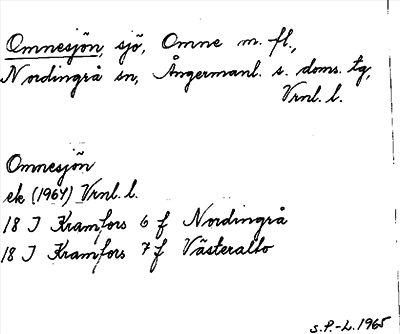 Omnesjön, sjö, Omne m. fl.,
Nordingrå sn, Ångermanl. s. doms. tg,
Vrnl. l.
Omnesjön
ek (1964) Vrnl. l.
18 J Kramfors 6 f Nordingrå
18 J Kramfors 7 f Västeralto
S.P.-L. 1965